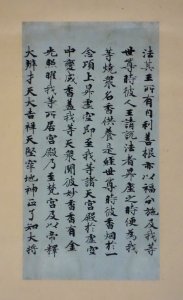 法其王所有自利善根亦以福分施及我等
世尊時彼人王請說法者昇座之時便為我
等燒眾名香供養是經世尊時彼香烟於一
念頃上昇虛空即至我等諸天宮殿於虛空
中變成香蓋我等天眾聞彼妙香香有金
光照曜我等所居宮殿乃至梵宮及以帝釋
大辯才天大吉祥天堅牢地神正了知大將